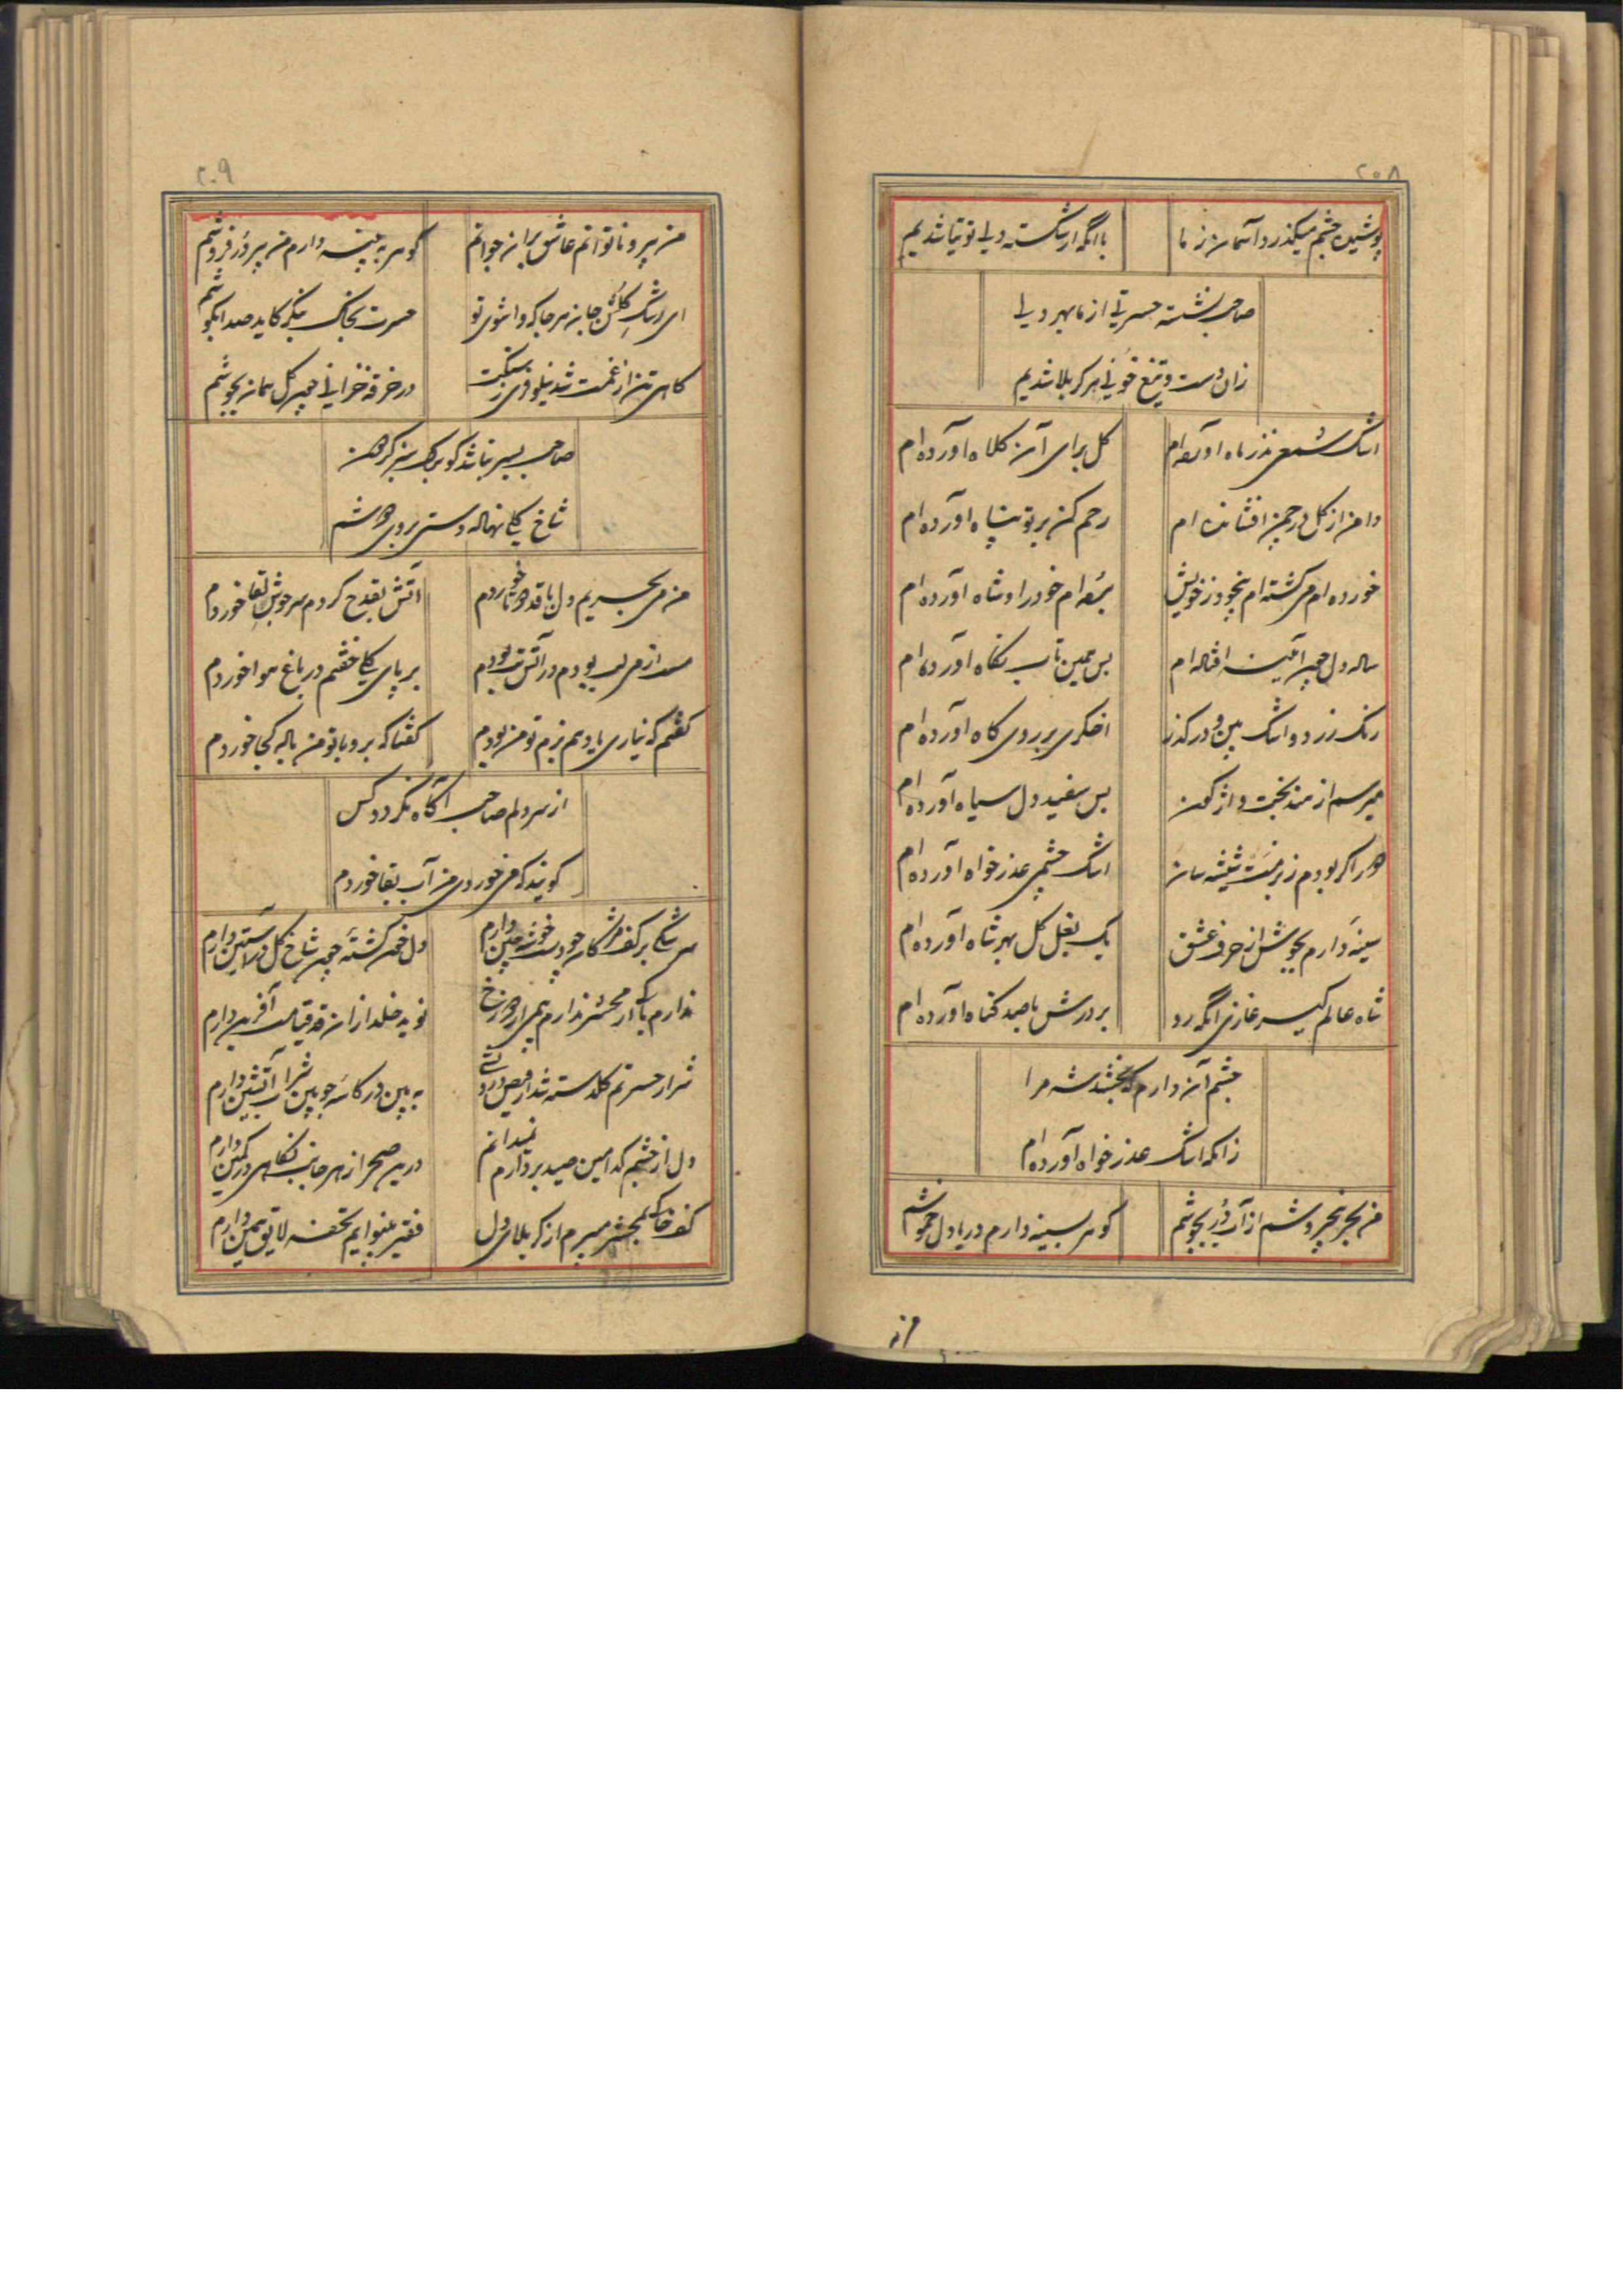 ۲۰۸
پوشیده چشم میگذرد آسمان ز ما
با آنکه از شکسته دلی توتیا شدیم
صاحب نشسته حسرتی از ما بهر دلی
زان دست و تیغ خونی هر کربلا شدیم
اشک شمعی نذر ماه آورده ام
گل برای آن کلاه آورده ام
دامن از گل در چمن افشانده ام
رحم کن بر تو پناه آورده ام
خورده ام می گشته ام بیخود ز خویش
برده ام خود را و شاه آورده ام
ساله دل چون آینه ام
بس همین تاب نگاه آورده ام
رنگ زرد و اشک بین و در گذر
اخگری بر روی کاه آورده ام
میرسم از هند بخت واژگون
بس سفید دل سیاه آورده ام
دور اگر بودم ز بزمت شیشه سان
اشک چشمی عذر خواه آورده ام
سینه دارم بجوش از حرف عشق
یک بغل گل بهر شاه آورده ام
شاه عالم گیر غازی آنکه رو
بر درش با صد گناه آورده ام
چشم آن دارم که بخشد شه مرا
زانکه اشک عذر خواه آورده ام
من بحر بیخروشم از آب در بجوشم
گوهر بسینه دارم دریا دل خموشم
من
۲۰۹
من پیر و ناتوانم عاشق بران جوانم
گوهر به پنبه دارم من پیر در فروشم
ای اشک گلشن جان هر جا که واشوی تو
حسرت بخاک بنگر کاید صدا بگوشم
کاهی تن از غمت شد نیلوفری ز سنگت
در خرقه خزانی چون گل همان بجوشم
صاحب بسیر باشد گو برگ سبز گردون
شاخ گیا نهاله دستی بروی دوشم
من می بحریم دل با قد دوتا خوردم
آتش بقدح کردم سرجوش لقا خوردم
مست از می لب بودم در آتش تب بودم
بر پای گیا خفتم در باغ هوا خوردم
گفتم که نیاری یاد هم بزم تو من بودم
گفتا که برو با تو من باده کجا خوردم
از سر دلم صاحب آگاه نگردد کس
گویند که می خوردی من آب بقا خوردم
سرشکی بر کف مژگان چو دست خوشه چین دارم
دل خون گشته چون شاخ گل در آستین دارم
ندارم باک از محشر ندارم بیمی از دوزخ
نوید خلد از ان قد قیامت آفرین دارم
شرار حسرتم گلدسته شد از فیض درد
به بین در کاسه چوبین شراب آتشین دارم
دل از چشم کدامین صید بردارم نمیدانم
درین صحرا ز هر جانب نگاهی در کمین دارم
کف خاکی بمحشر میبرم از کربلای دل
فقیر بینوایم تحفه لایق همین دارم